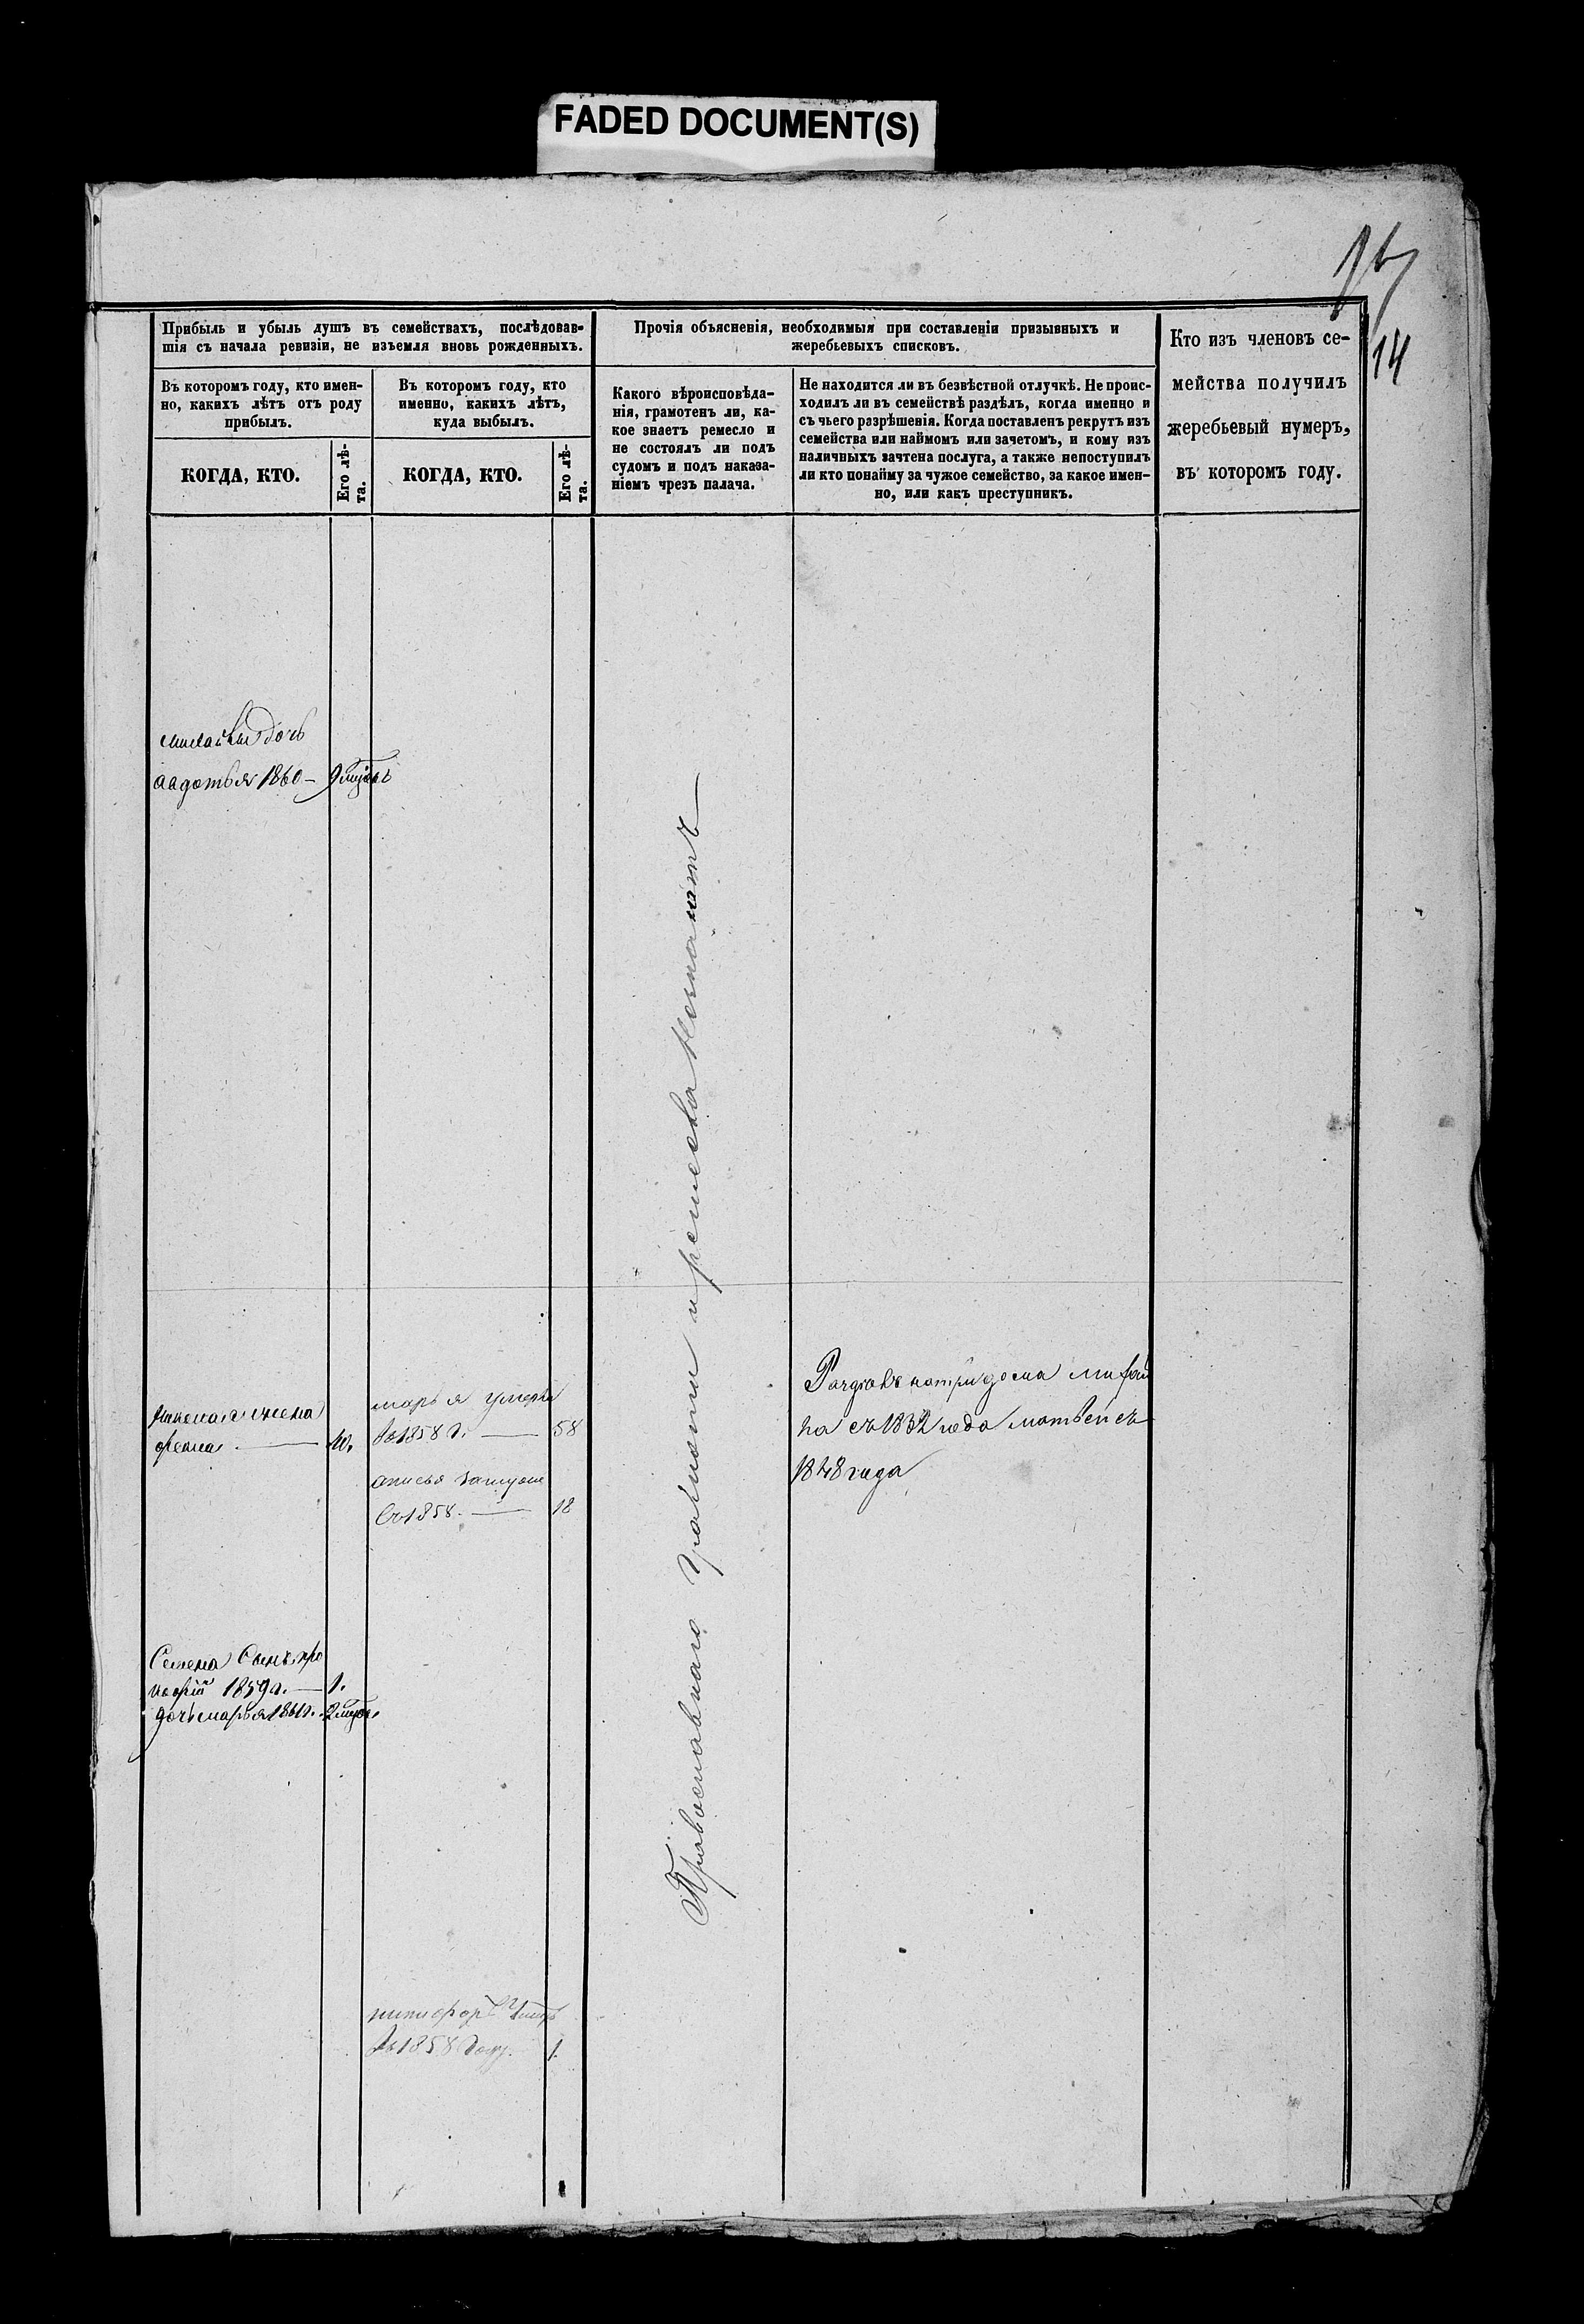 FADED DOCUMENT(S)
14
Прибыль и убыль душъ въ семействахъ, послѣдовав-
шія съ начала ревизіи, не изъемля вновь рожденныхъ.
Въ которомъ году, кто имен-
но, какихъ лѣтъ отъ роду
прибылъ.
КОГДА, КТО.
Его лѣ-
та.
Въ которомъ году, кто
именно, какихъ лѣтъ,
куда выбылъ.
КОГДА, КТО.
Его лѣ-
та.
Прочія объясненія, необходимыя при составленіи призывныхъ и
жеребьевыхъ списковъ.
Какого вѣроисповѣда-
нія, грамотенъ ли, ка-
кое знаетъ ремесло и
не состоялъ ли подъ
судомъ и подъ наказа-
ніемъ чрезъ палача.
Не находится ли въ безвѣстной отлучкѣ. Не проис-
ходилъ ли въ семействѣ раздѣлъ, когда именно и
съ чьего разрѣшенія. Когда поставленъ рекрутъ изъ
семейства или наймомъ или зачетомъ, и кому изъ
наличныхъ зачтена послуга, а также непоступилъ
ли кто понайму за чужое семейство, за какое имен-
но, или какъ преступникъ.
Кто изъ членовъ се-
мейства получилъ
жеребьевый нумеръ,
въ которомъ году.
дочь
авдотья 1860 –
жена
40.
марья умерла
въ 1858 г. — 58
въ 1858. — 18
Православнаго грамоти и ремесла незнаютъ
Раздѣлъ натри дома
на съ 1832 года матвей съ
1848 года
Семена сынъ про
кофій 1859 г. — 1.
дочь марья 1861 г.
никифоръ умеръ
въ 1858 году. 1.